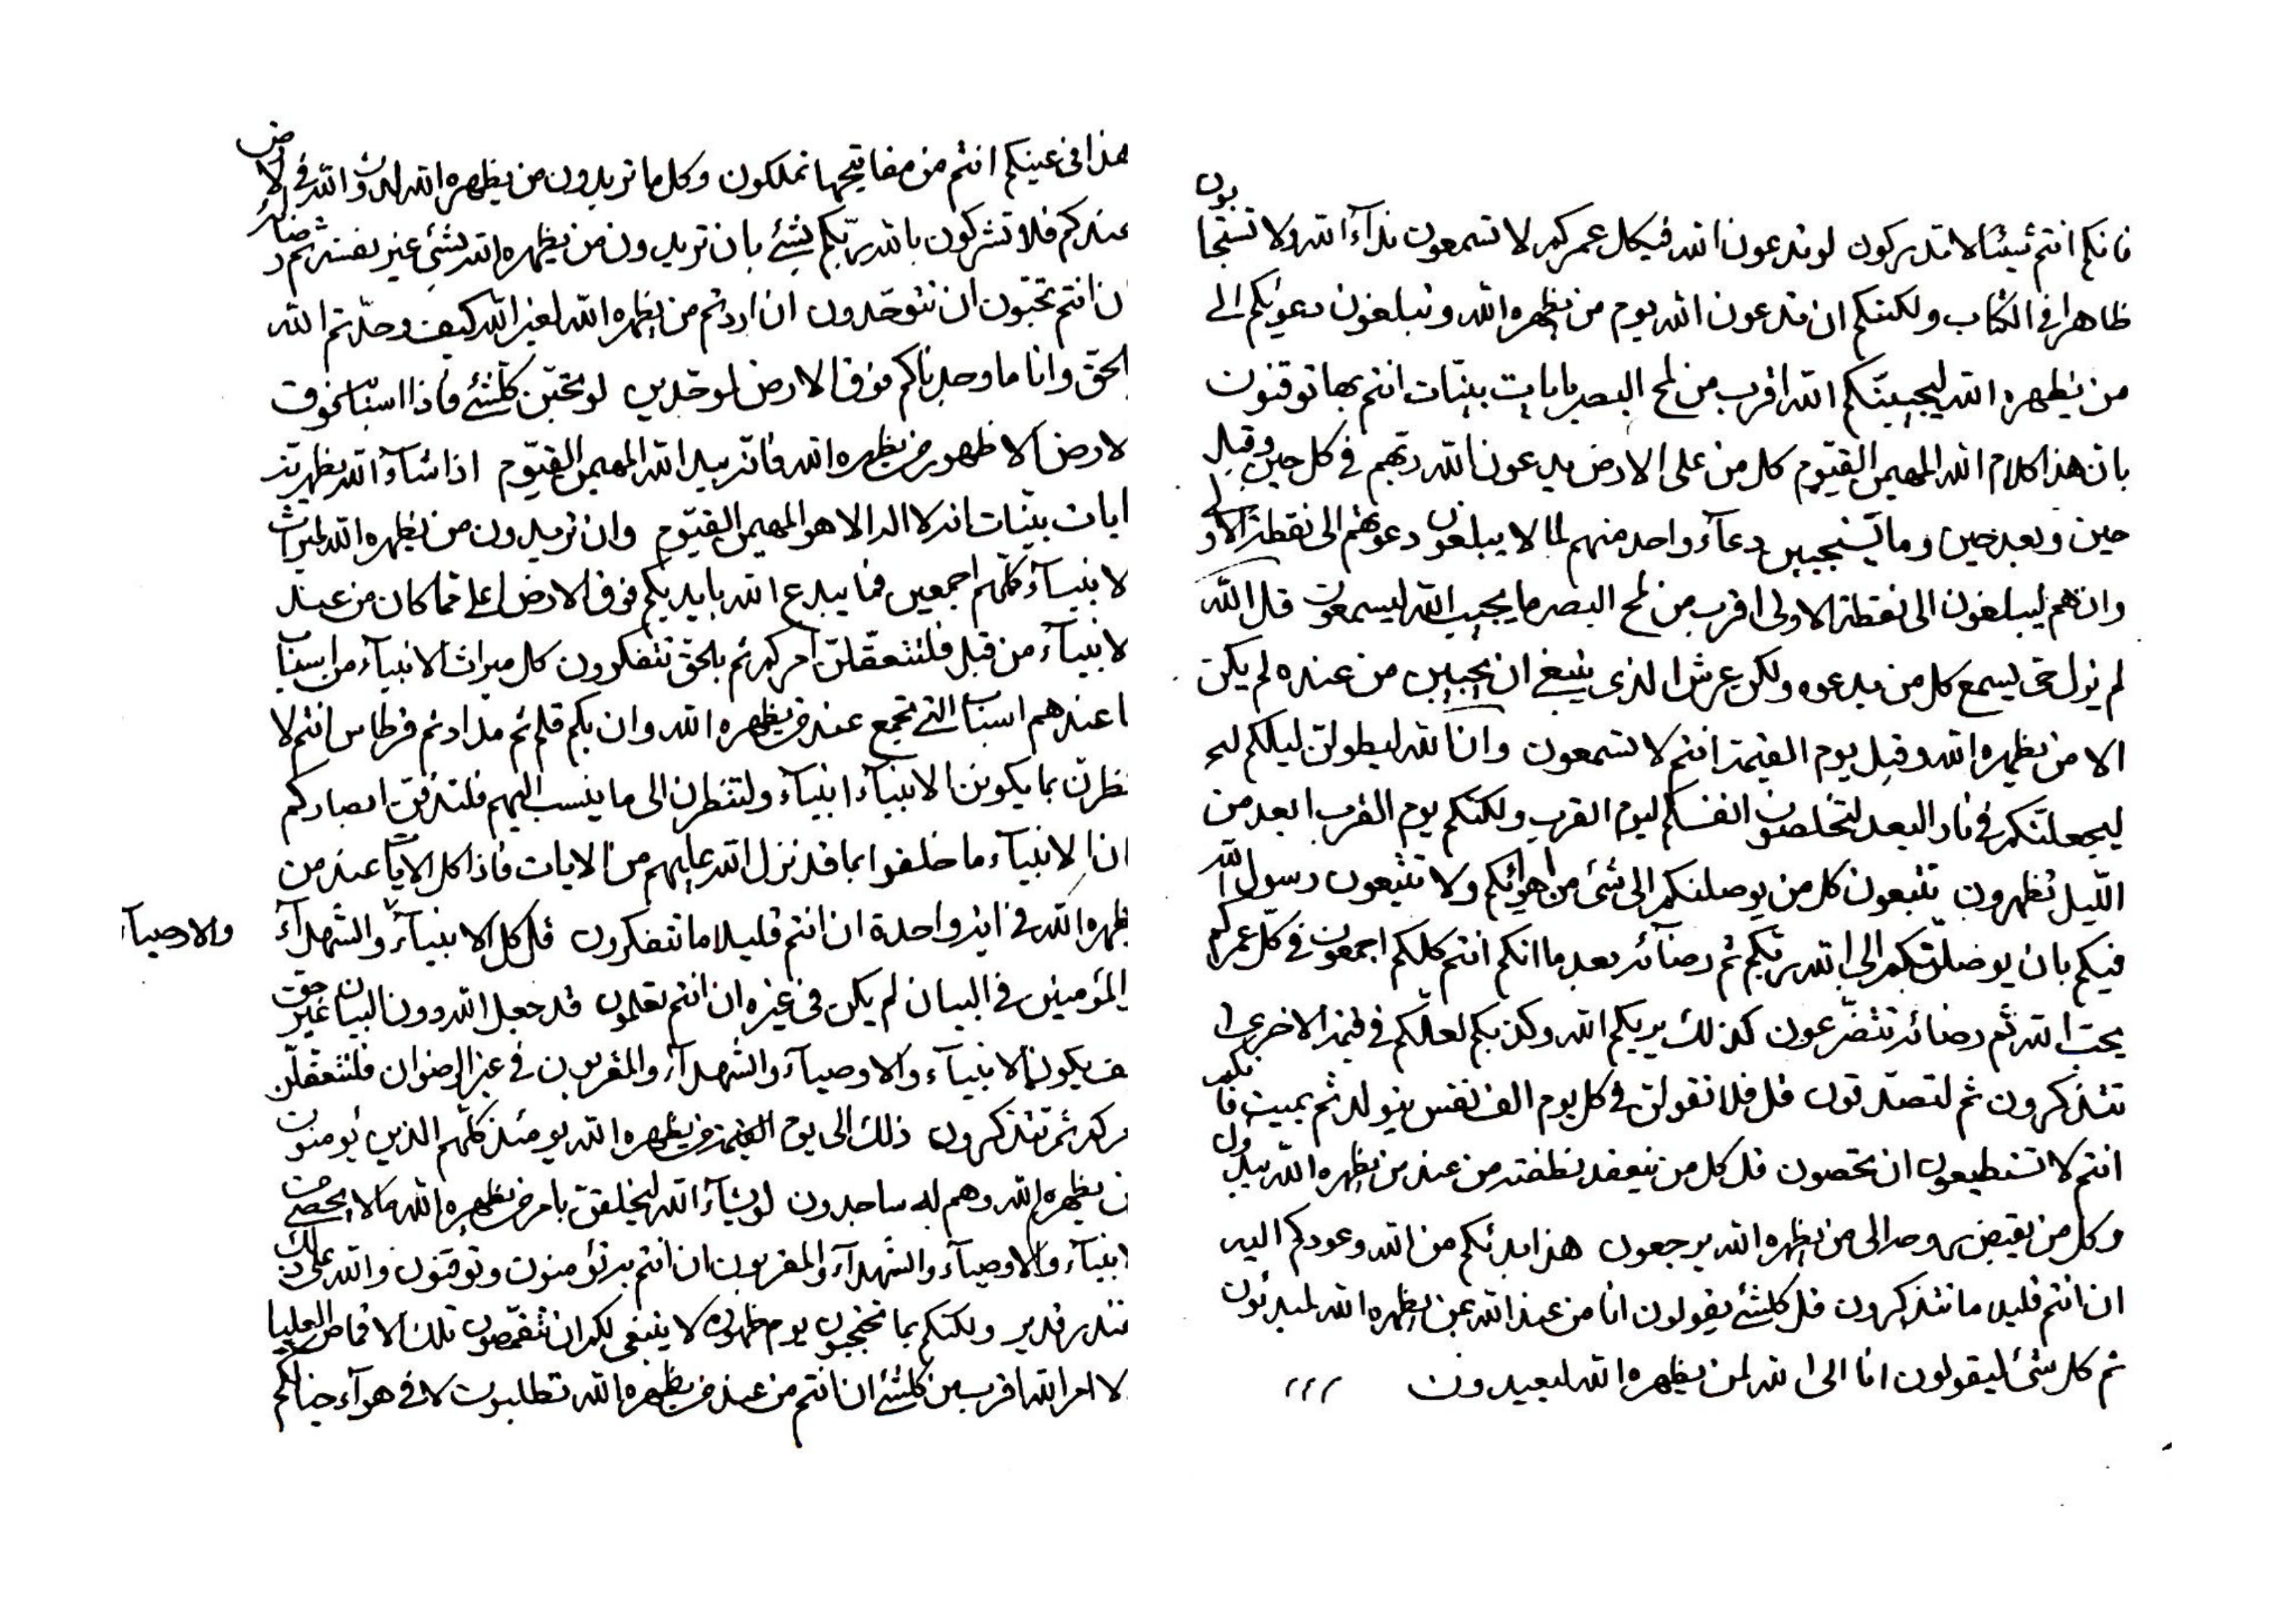 فانكم انتم شيئا لا تدركون لو تدعون الله فيكل عمركم لا تسمعون ندآء الله ولا تستجابون
ظاهرا في الكتاب ولكنكم ان تدعون الله يوم من يظهره الله وتبلغون دعوتكم الى
من يظهره الله ليجيبنكم الله اقرب من لمح البصر بايات بينات انتم بها توقنون
بان هذا كلام الله المهيمن القيوم كل من على الارض يدعون الله ربهم في كل حين وقبل
حين وبعد حين وما يستجيبن دعآء واحد منهم لما لا يبلغون دعوتهم الى نقطة الاولى
وان هم ليبلغون الى نقطة الاولى اقرب من لمح البصر ما يجيب الله ليسمعون قل الله
لم يزل حي يسمع كل من يدعوه ولكن عرش الذي ينبغي ان يجيبن من عنده لم يكن
الا من يظهره الله وقبل يوم القيمة انتم لا تسمعون وان الله ليطولن ليلكم
ليجعلنكم في نار البعد لتخلصون انفسكم ليوم القرب ولكنكم يوم القرب ابعد من
الليل تظهرون تتبعون كل من يوصلنكم الى شئ من اهوائكم ولا تتبعون رسول الله
فيكم بان يوصلنكم الى الله ربكم ثم رضآئه بعد ما انكم انتم كلكم اجمعون في كل عمركم
يحب الله ثم رضائه تتضرعون كذلك يريكم الله وكذبكم لعلكم في قيمة الاخرى
تتذكرون ثم لتصدقون قل فلا تقولن في كل يوم الف نفس يتولد ثم يميت فانكم
انتم لا تستطيعون ان تحصون قل كل من ينعقد نطفته من عند من يظهره الله يبدؤن
وكل من يقبض روحه الى من يظهره الله يرجعون هذا بدئكم من الله وعودكم اليه
ان انتم قليلا ما تتذكرون قل كلشئ يقولون انا من عند الله عمن يظهره الله لمبدئون
ثم كل شئ ليقولون انا الى الله لمن يظهره الله ليعيدون
هذا في عينكم انتم من مفاتيحها تملكون وكل ما تريدون من يظهره الله لدون الله في الارض
عندكم فلا تشركون بالله ربكم بشئ بان تريدون من يظهره الله بشئ غير نفسه ثم رضائه
ن انتم تحبون ان تتوحدون ان اردتم من يظهره الله لغير الله كيف وحدتم الله
لحق وانا ما وجدناكم فوق الارض لموحدين لو تحبن كلشئ فاذا اسباب فوق
لارض الا ظهور من يظهره الله فانه بيد الله المهيمن القيوم اذا شآء الله يظهرنه
ايات بينات انه لا اله الا هو المهيمن القيوم وان تريدون من يظهره الله لميراث
لانبيآء كلهم اجمعين فما يبدع الله بايديكم فوق الارض اعلى مما كان من عند
لانبيآء من قبل فلتتعقلن امركم ثم بالحق تتفكرون كل ميراث الانبيآء من اسباب
ا عندهم اسباب التي تجمع عند من يظهره الله وان بكم قلم ثم مداد ثم قرطاس انتم لا
نظرن بما يكونن الانبيآء انبيآء ولتنظرن الى ما ينسب اليهم فلتدقن ابصاركم
ان الانبيآء ما خلقوا بما قد نزل الله عليهم من الايات فاذا كل الايات عند من
يظهره الله في اية واحدة ان انتم قليلا ما تتفكرون قل كل الانبيآء والشهدآء
والاوصيآء
المؤمنين في البيان لم يكن في غيره ان انتم تعلمون قد جعل الله دون البيان غير حق
يف يكون الانبيآء والاوصيآء والشهدآء والمقربون في غير الرضوان فلتتعقلن
مركم ثم تتذكرون ذلك الى يوم القيمة من يظهره الله يومئذ كلهم الذين يؤمنون
ن يظهره الله وهم له ساجدون لو يشآء الله ليخلقن بامر من يظهره الله ما لا يحصى من
انبيآء والاوصيآء والشهدآء والمقربون ان انتم به تؤمنون وتوقنون والله على ذلك
قتدر قدير ولكنكم بما تحتجبون يوم ظهوره لا ينبغي لكم ان تتقمصون تلك الاقماص العليا
لا امر الله اقرب من كلشئ ان انتم من عند من يظهره الله تطلبون لا في هوآء خيالكم